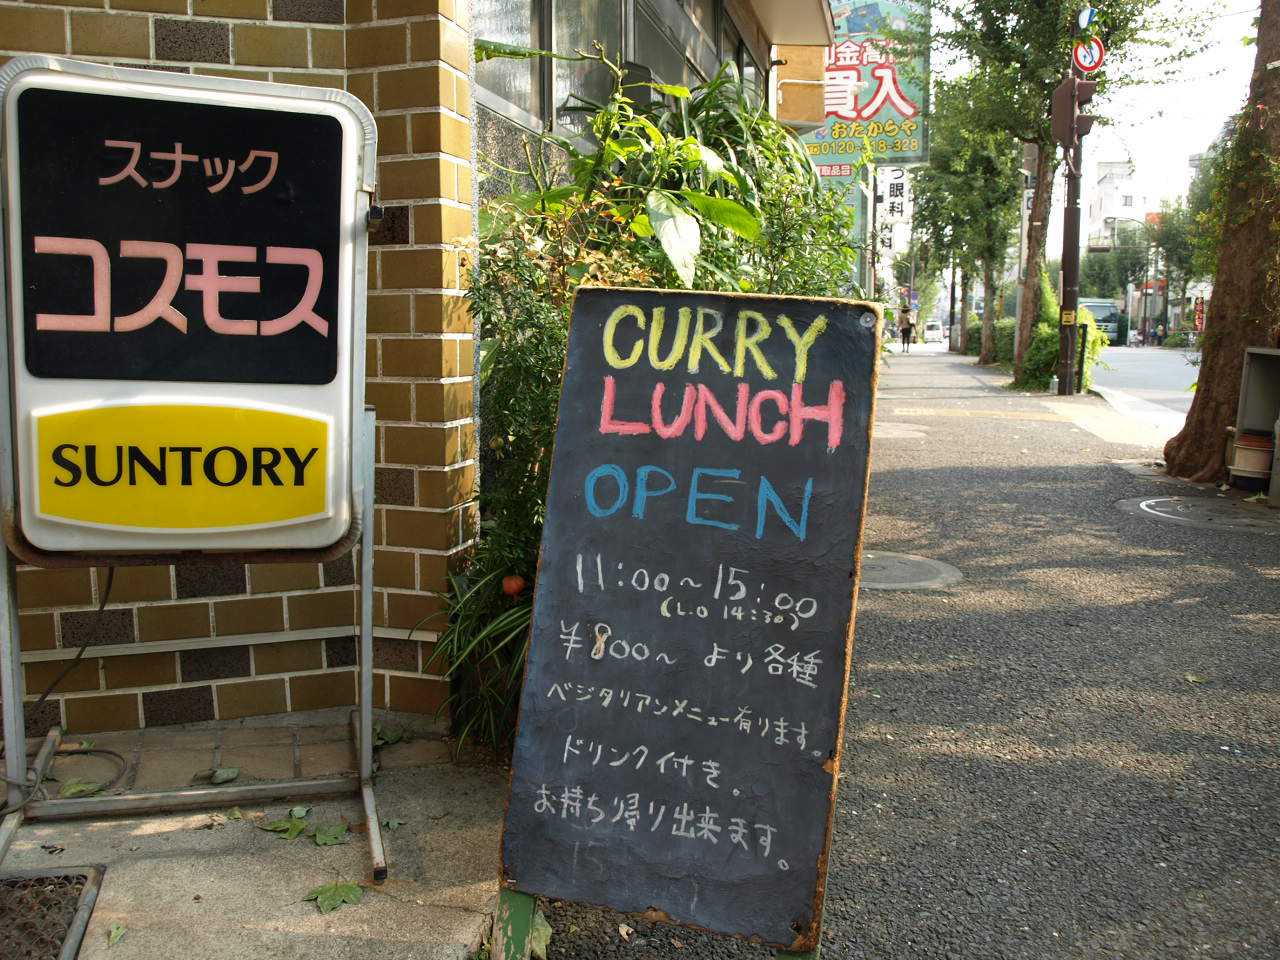 スナック
コスモス
SUNTORY
CURRY
LUNCH
OPEN
11:00~15:00
(L.O 14:30)
¥800~ より各種
ベジタリアンメニュー有ります。
ドリンク付き。
お持ち帰り出来ます。
金高
買入
おたからや
0120-518-328
取品目
眼科
内科